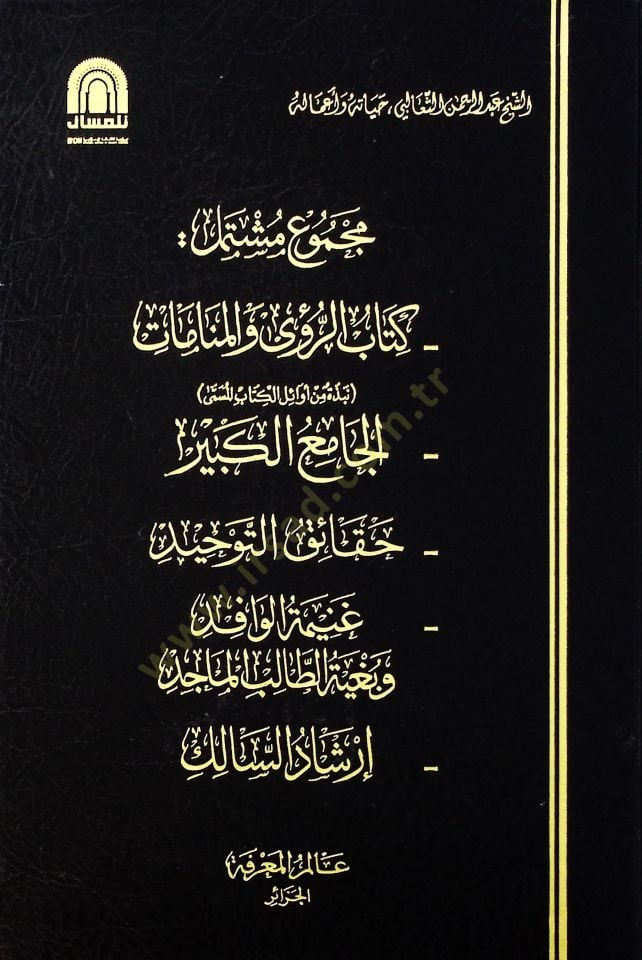 الشيخ عبد الرحمن الثعالبي، حياته وأعماله
تلمسان
مجموع مُشتمل:
- كِتَابُ الرُّؤى وَالمنَامَات
(نبذة من أوائل الكتاب المسمّى)
- الجَامِع الكَبير
- حَقَائق التَّوحيد
- غَنيمَة الوَافد
وَبُغْيَة الطَّالب الماجد
- إرْشَادُ السَّالِكِ
عَالم المَعرفَة
الجزائر
www.irsad.com.tr